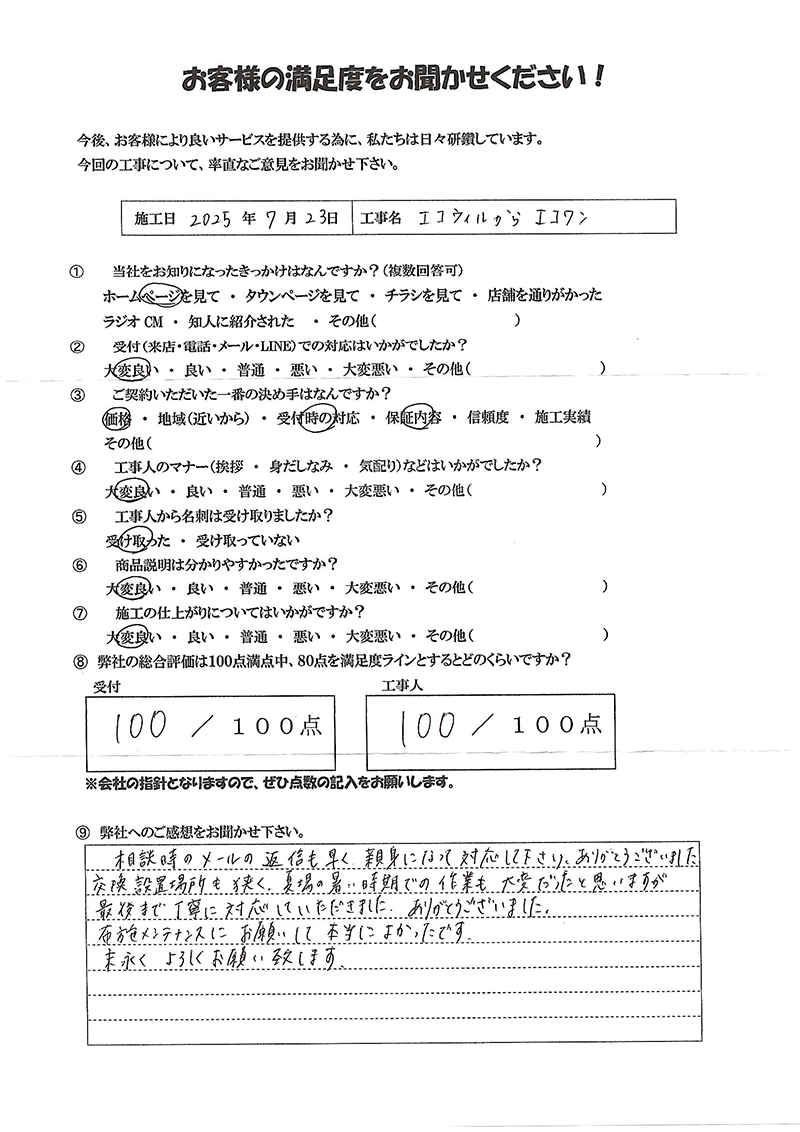 お客様の満足度をお聞かせください！
今後、お客様により良いサービスを提供する為に、私たちは日々研鑽しています。
今回の工事について、率直なご意見をお聞かせ下さい。
施工日 2025 年 7 月 23日 工事名 エコウィルから エコワン
① 当社をお知りになったきっかけはなんですか？（複数回答可）
ホームページを見て ・ タウンページを見て ・ チラシを見て ・ 店舗を通りがかった
ラジオCM ・ 知人に紹介された ・ その他（ ）
② 受付（来店・電話・メール・LINE）での対応はいかがでしたか？
大変良い ・ 良い ・ 普通 ・ 悪い ・ 大変悪い ・ その他（ ）
③ ご契約いただいた一番の決め手はなんですか？
価格 ・ 地域（近いから） ・ 受付時の対応 ・ 保証内容 ・ 信頼度 ・ 施工実績
その他（ ）
④ 工事人のマナー（挨拶 ・ 身だしなみ ・ 気配り）などはいかがでしたか？
大変良い ・ 良い ・ 普通 ・ 悪い ・ 大変悪い ・ その他（ ）
⑤ 工事人から名刺は受け取りましたか？
受け取った ・ 受け取っていない
⑥ 商品説明は分かりやすかったですか？
大変良い ・ 良い ・ 普通 ・ 悪い ・ 大変悪い ・ その他（ ）
⑦ 施工の仕上がりについてはいかがですか？
大変良い ・ 良い ・ 普通 ・ 悪い ・ 大変悪い ・ その他（ ）
⑧ 弊社の総合評価は100点満点中、80点を満足度ラインとするとどのくらいですか？
受付 工事人
100 ／ １００点 100 ／ １００点
※会社の指針となりますので、ぜひ点数の記入をお願いします。
⑨ 弊社へのご感想をお聞かせ下さい。
相談時のメールの返信も早く、親身になって対応して下さり、ありがとうございました
交換設置場所も狭く、夏場の暑い時期での作業も大変だったと思いますが
最後まで丁寧に対応していただきました。ありがとうございました。
メンテナンスにお願いして本当によかったです。
末永くよろしくお願い致します。